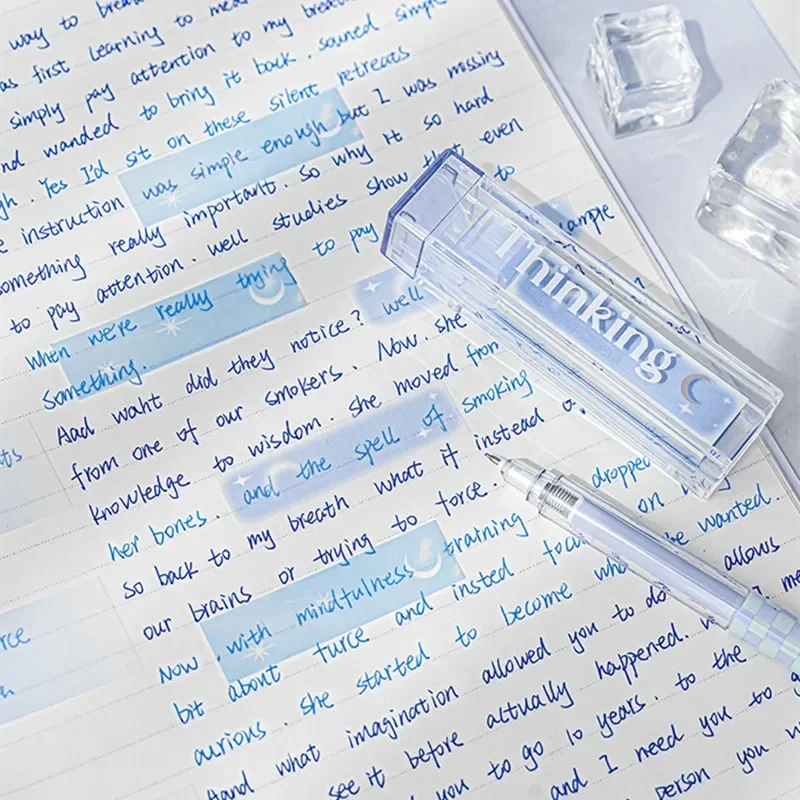 way to brea
as first learning to me
simply pay attention to my brea
nd wanded to bring it back. souned simple
gh. Yes I'd sit on these silent retreats
e instruction was simple enough but I was missing
something really important. So why it so hard
to pay attention. well studies show that even
when we're really trying to pay to
something. ample
And waht did they notice? well
from one of our smokers. Now. she
knowledge to wisdom. she moved from
her bones. and the spell of smoking
so back to my breath what it instead o
our brains or trying to force. dropped
Now .with mindfulness training on
bit about furce and insted focu be wanted.
aurious. she started to become wha allows
And what imagination allowed you to do
see it before actually happened.
ou to go 10 years. to the
and I need you to
person you
Thinking
ts
rce